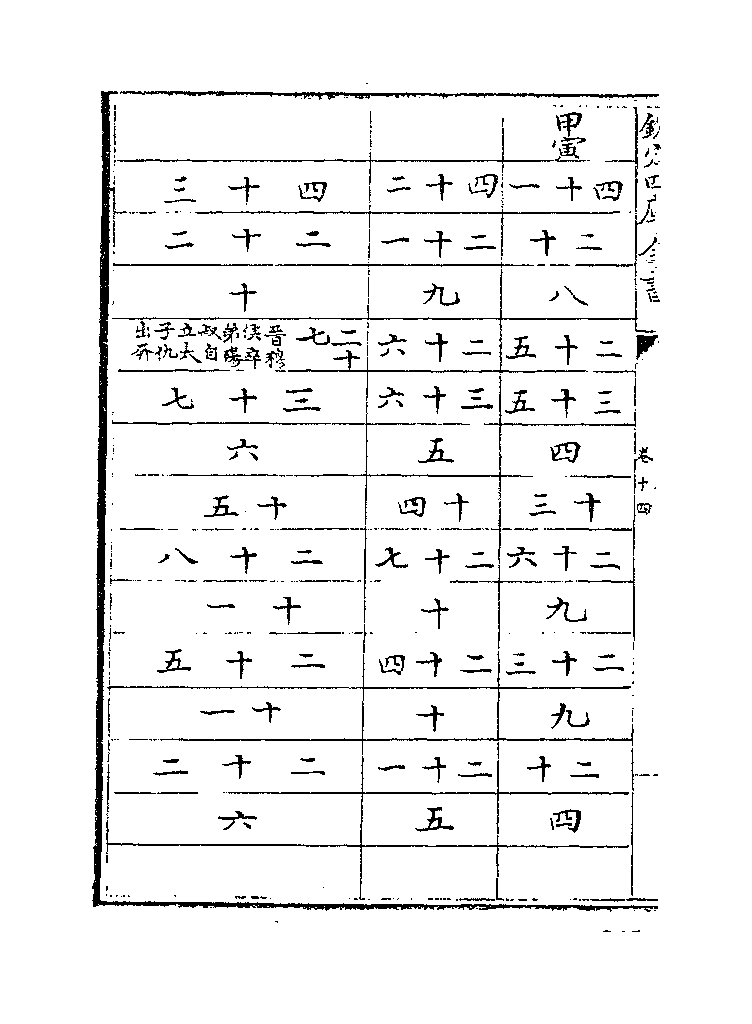 欽定四庫全書
卷十四
甲寅
四十一
二十
八
二十五
三十五
四
十三
二十六
九
二十三
九
二十
四
四十二
二十一
九
二十六
三十六
五
十四
二十七
十
二十四
十
二十一
五
四十三
二十二
十
二十七
晉穆
侯卒
弟殤
叔自
立太
子仇
出奔
三十七
六
十五
二十八
十一
二十五
十一
二十二
六